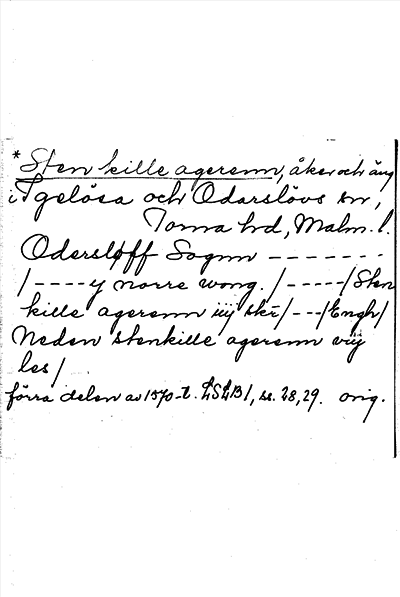 *Sten kille agerenn, åker och äng
i Igelösa och Odarslövs snr,
Torna hd, Malm. l.
Odersløff Sognn -------
/----y norre wong. /-----/Sten
kille agerenn iiij skr/---/Engh/
Neden stenkille agerenn viij
les/
förra delen av 1570-t. LSLB1, ss. 28, 29. orig.